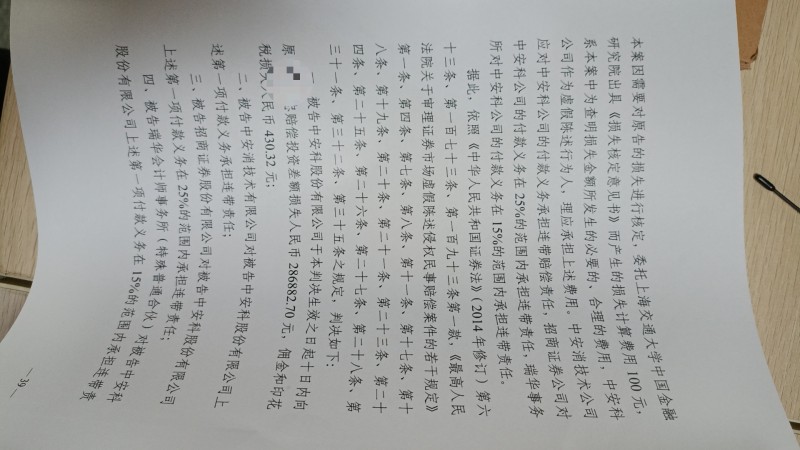 本案因需要对原告的损失进行核定，委托上海交通大学中国金融
研究院出具《损失核定意见书》而产生的损失计算费用 100 元，
系本案中为查明损失金额所发生的必要的、合理的费用，中安科
公司作为虚假陈述行为人，理应承担上述费用。中安消技术公司
应对中安科公司的付款义务承担连带赔偿责任，招商证券公司对
中安科公司的付款义务在 25%的范围内承担连带责任，瑞华事务
所对中安科公司的付款义务在 15%的范围内承担连带责任。
据此，依照《中华人民共和国证券法》（2014 年修订）第六
十三条、第一百七十三条、第一百九十三条第一款，《最高人民
法院关于审理证券市场虚假陈述侵权民事赔偿案件的若干规定》
第一条、第四条、第七条、第八条、第十一条、第十七条、第十
八条、第十九条、第二十条、第二十一条、第二十三条、第二十
四条、第二十五条、第二十六条、第二十七条、第二十八条、第
三十一条、第三十二条、第三十五条之规定，判决如下：
一、被告中安科股份有限公司于本判决生效之日起十日内向
原 赔偿投资差额损失人民币 286882.70 元，佣金和印花
税损失人民币 430.32 元；
二、被告中安消技术有限公司对被告中安科股份有限公司上
述第一项付款义务承担连带责任；
三、被告招商证券股份有限公司对被告中安科股份有限公司
上述第一项付款义务在 25%的范围内承担连带责任；
四、被告瑞华会计师事务所（特殊普通合伙）对被告中安科
股份有限公司上述第一项付款义务在 15%的范围内承担连带责
— 39